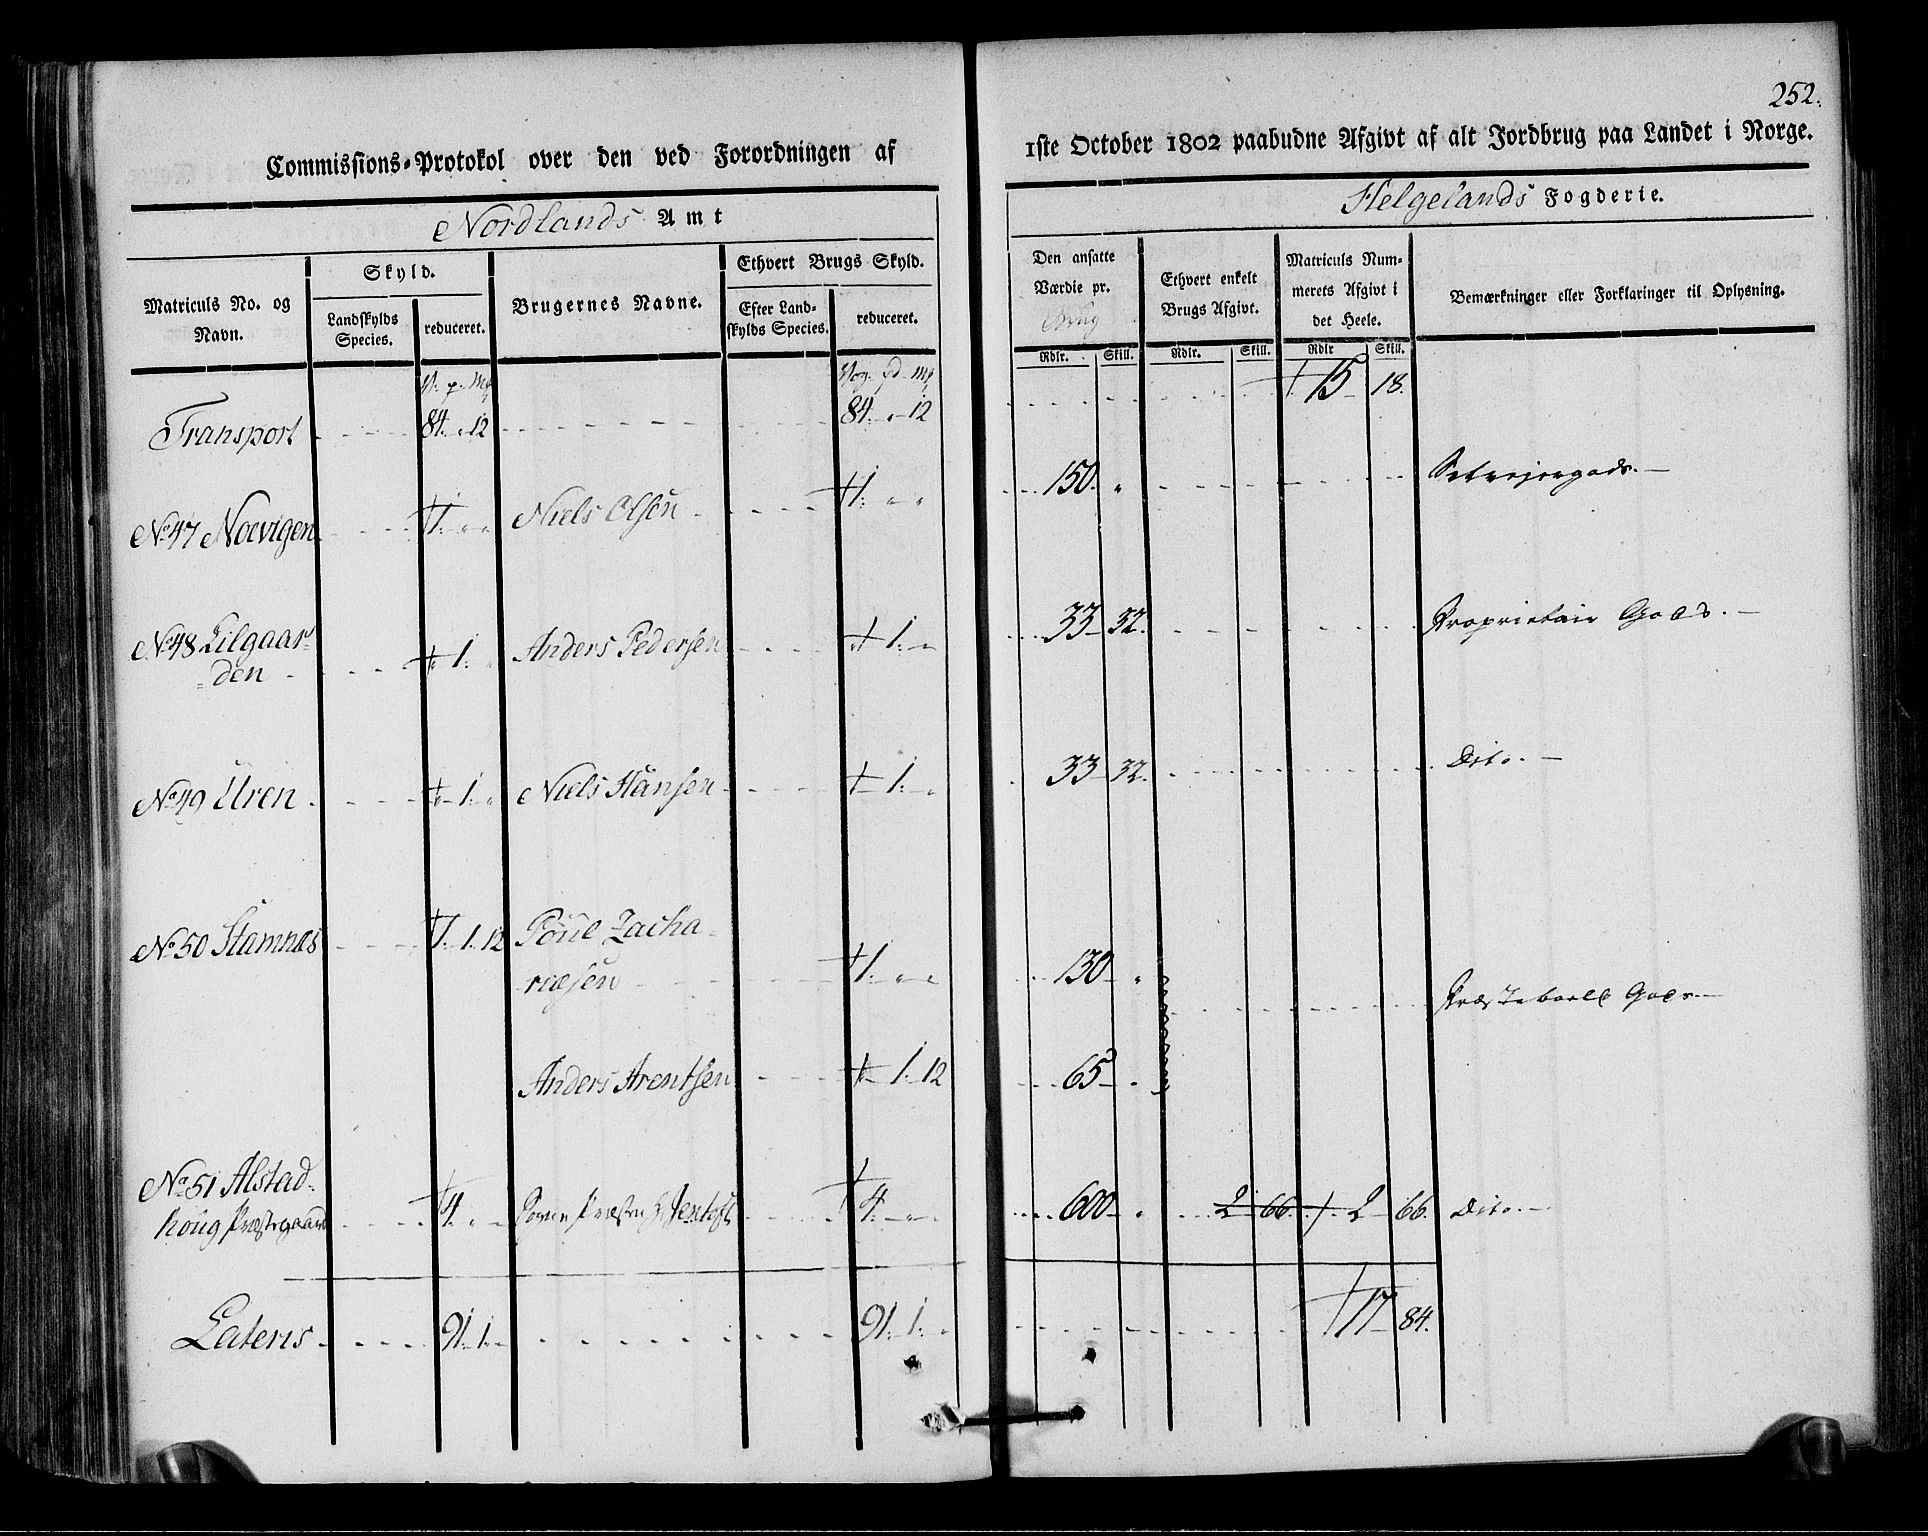 252.
Commissions-Protokol over den ved Forordningen af
1ste October 1802 paabudne Afgivt af alt Jordbrug paa Landet i Norge.
Nordlands Amt
Helgelands Fogderie.
Matriculs No. og Navn.
Skyld.
Landskylds Species.
reduceret.
Brugernes Navne.
Ethvert Brugs Skyld.
Efter Landskylds Species.
reduceret.
Den ansatte Værdie pr. Brug
Ethvert enkelt Brugs Afgivt.
Matriculs Nummerets Afgivt i det Heele.
Bemærkninger eller Forklaringer til Oplysning.
Rdlr. Skill. Rdlr. Skill. Rdlr Skill.
V. p. Mk Vog. pd. Mk
Transport 84. " 12 84. " 12 15 18.
No 47 Noevigen 1. " " Niels Olsen 1. " " 150. " Selveiergods.
No 48 Lilgaarden " 1. " Anders Pedersen " 1. " 33 32. Proprietair Gods.
No 49 Uren " 1. " Niels Hansen " 1. " 33 32. Dito.
No 50 Stamnæs 1. 1. 12 Poül Zachariæsen 1. " " 130 " Præstebolet Gods.
Anders Arentsen " 1. 12 65 "
No 51 Alstadhoüg Præstegaard 4. " " Sogne Præsten Hr Jentoft 4. " " 600 " 2 66. 2 66. Dito.
Lateris 91. 1. " 91. 1. " 17 84.